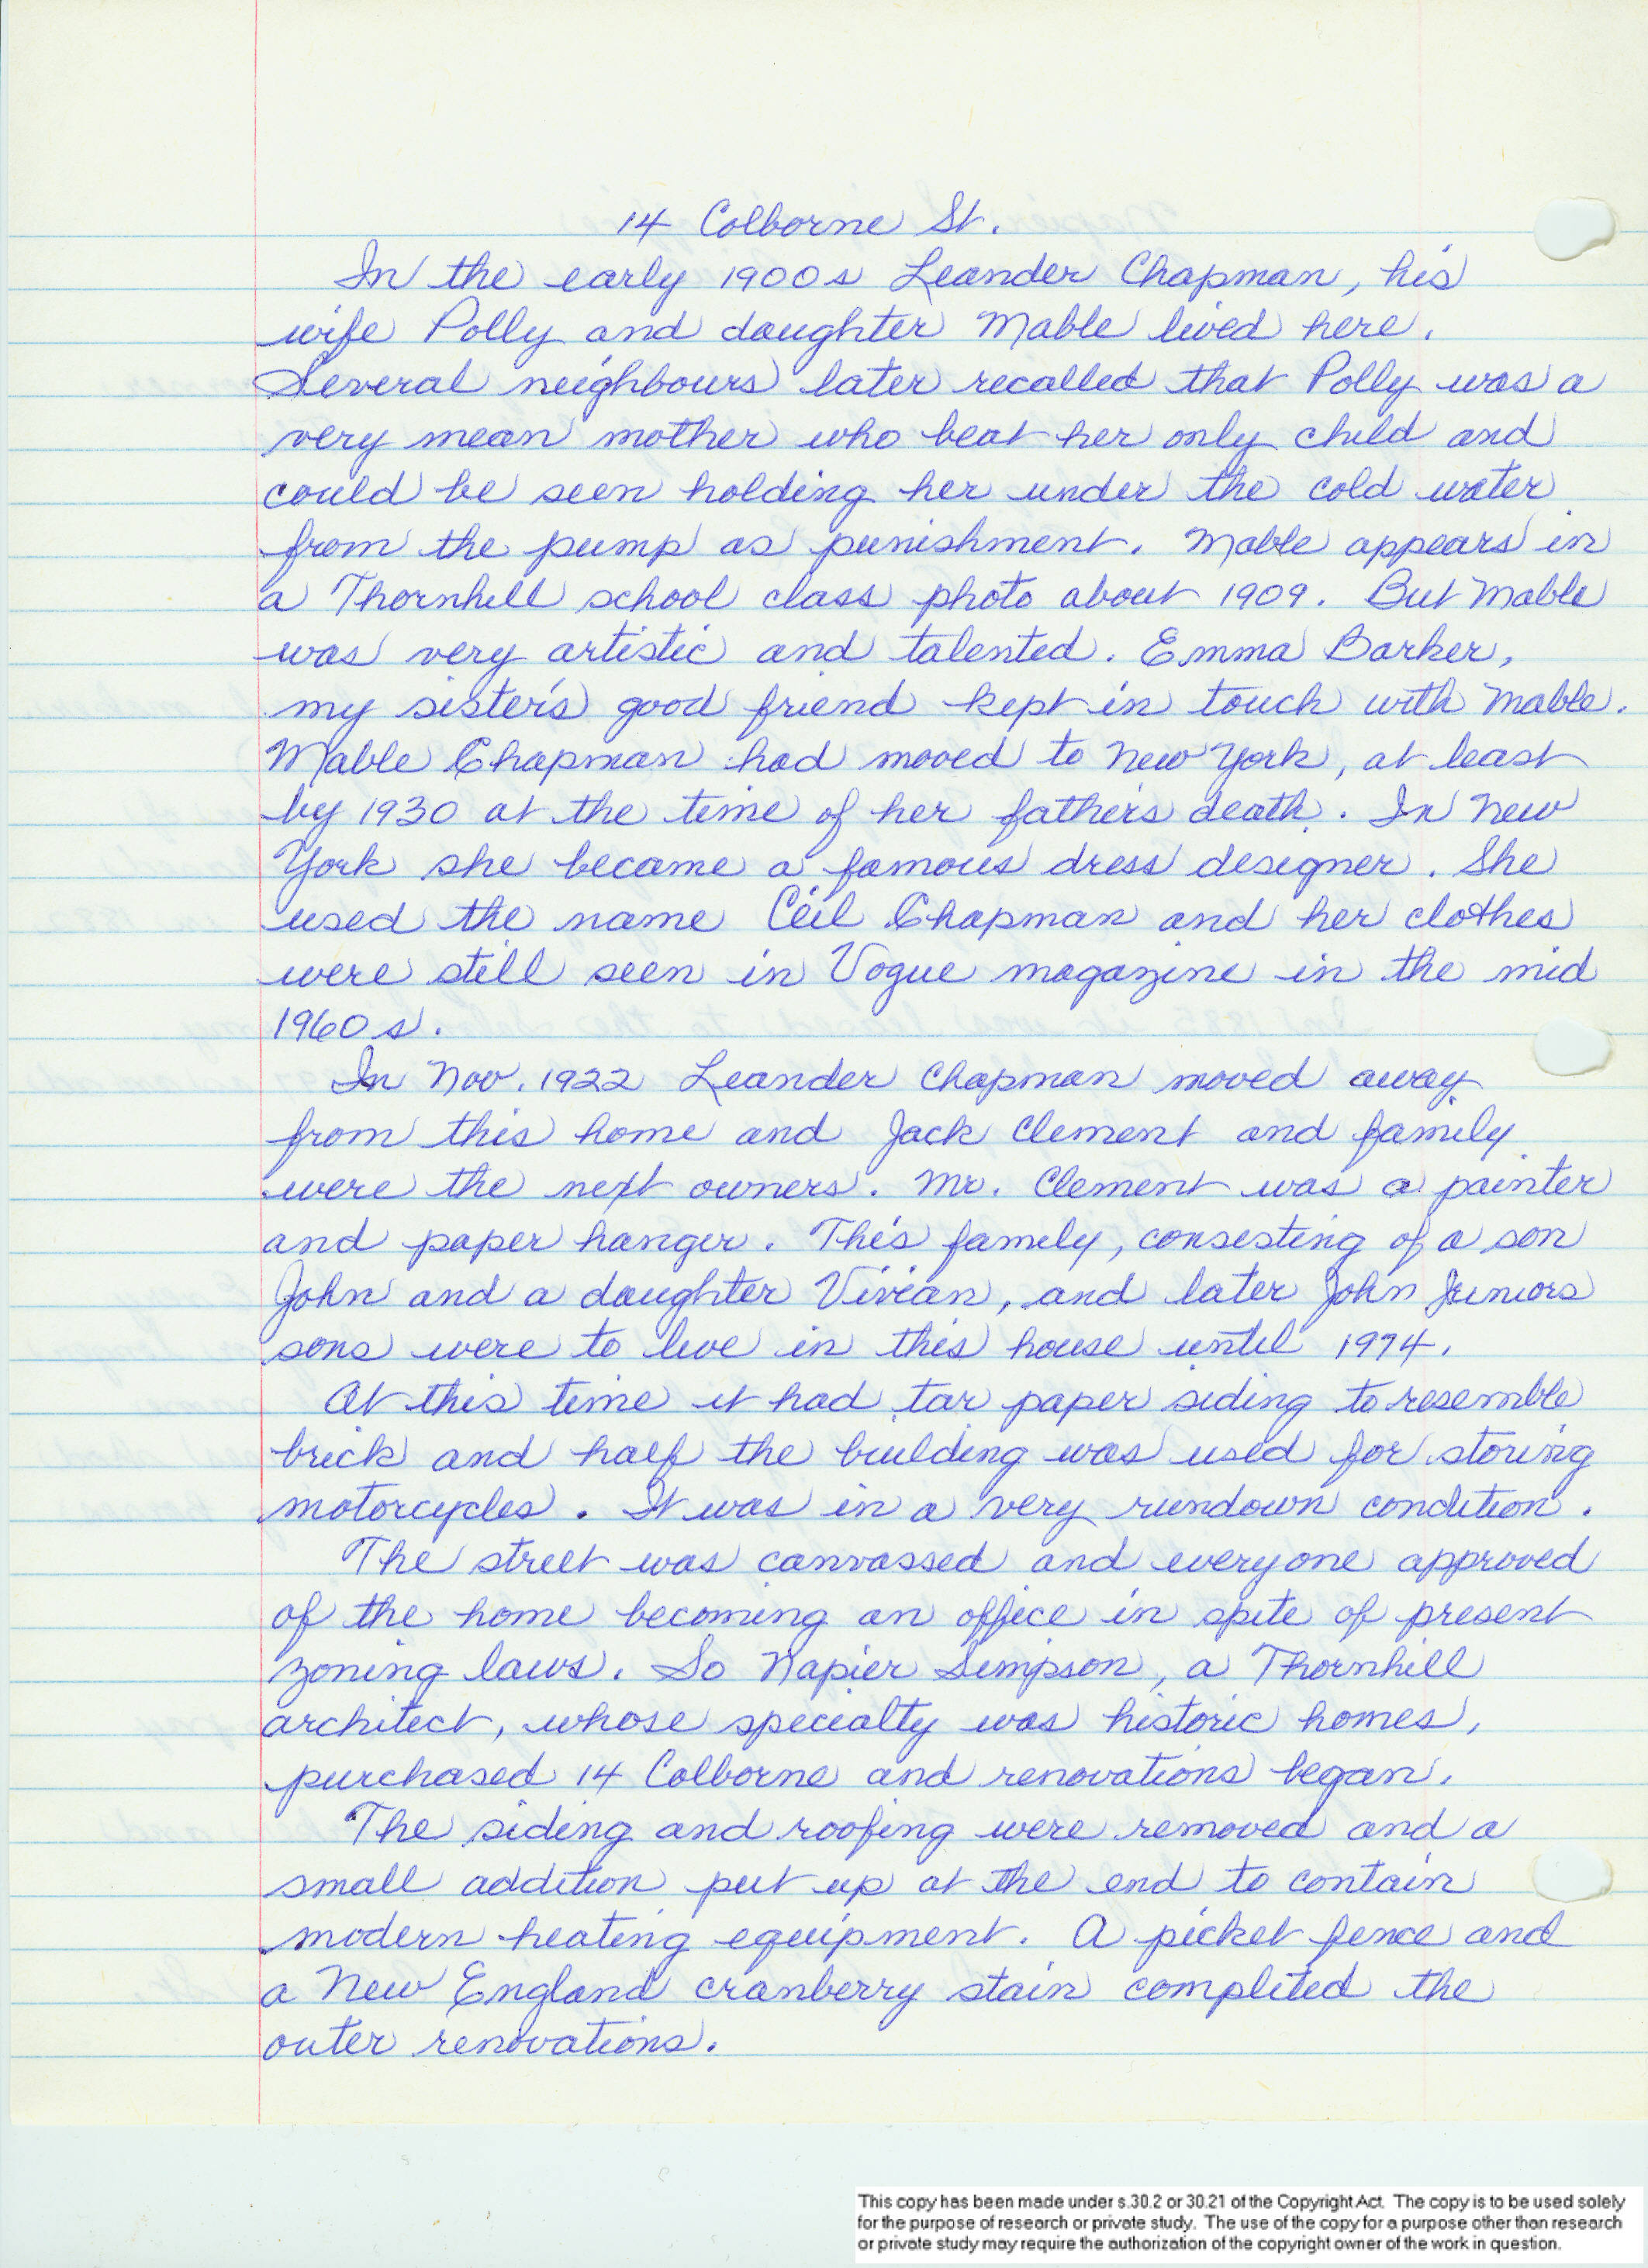 14 Colborne St.
In the early 1900s Leander Chapman, his
wife Polly and daughter Mable lived here.
Several neighbours later recalled that Polly was a
very mean mother who beat her only child and
could be seen holding her under the cold water
from the pump as punishment. Mable appears in
a Thornhill school class photo about 1909. But Mable
was very artistic and talented. Emma Barker,
my sister's good friend kept in touch with Mable.
Mable Chapman had moved to New York, at least
by 1930 at the time of her father's death. In New
York she became a famous dress designer. She
used the name Ceil Chapman and her clothes
were still seen in Vogue magazine in the mid
1960s.
In Nov. 1922 Leander Chapman moved away
from this home and Jack Clement and family
were the next owners. Mr. Clement was a painter
and paper hanger. This family, consisting of a son
John and a daughter Vivian, and later John Juniors
sons were to live in this house until 1974.
At this time it had tar paper siding to resemble
brick and half the building was used for storing
motorcycles. It was in a very rundown condition.
The street was canvassed and everyone approved
of the home becoming an office in spite of present
zoning laws. So Napier Simpson, a Thornhill
architect, whose specialty was historic homes,
purchased 14 Colborne and renovations began.
The siding and roofing were removed and a
small addition put up at the end to contain
modern heating equipment. A picket fence and
a New England cranberry stain completed the
outer renovations.
This copy has been made under s.30.2 or 30.21 of the Copyright Act. The copy is to be used solely
for the purpose of research or private study. The use of the copy for a purpose other than research
or private study may require the authorization of the copyright owner of the work in question.